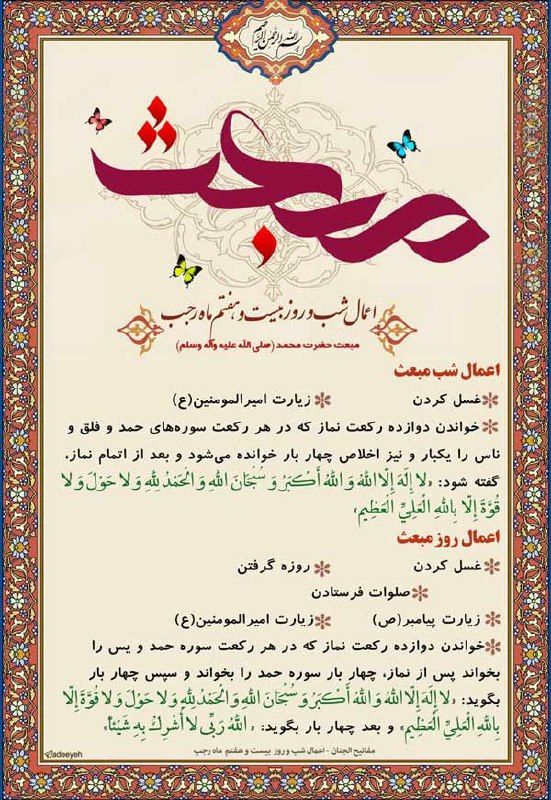 بسم الله الرحمن الرحیم
مبعث
اعمال شب و روز بیست و هفتم ماه رجب
مبعث حضرت محمد (صلی الله علیه وآله وسلم)
اعمال شب مبعث
غسل کردن زیارت امیرالمومنین(ع)
خواندن دوازده رکعت نماز که در هر رکعت سوره‌های حمد و فلق و
ناس را یکبار و نیز اخلاص چهار بار خوانده می‌شود و بعد از اتمام نماز،
گفته شود: «لا إِلَهَ إِلَّا اللهُ وَ اللهُ أَكبَرُ وَ سُبْحَانَ اللهِ وَ الْحَمْدُ لِلَّهِ وَ لا حَوْلَ وَ لا
قُوَّةَ إِلّا بِاللهِ الْعَلِيِّ الْعَظِيمِ»
اعمال روز مبعث
غسل کردن روزه گرفتن
صلوات فرستادن
زیارت پیامبر(ص) زیارت امیرالمومنین(ع)
خواندن دوازده رکعت نماز که در هر رکعت سوره حمد و یس را
بخواند پس از نماز، چهار بار سوره حمد را بخواند و سپس چهار بار
بگوید: «لا إِلَهَ إِلَّا اللهُ وَ اللهُ أَكبَرُ وَ سُبْحَانَ اللهِ وَ الْحَمْدُ لِلَّهِ وَ لا حَوْلَ وَ لا قُوَّةَ إِلّا
بِاللهِ الْعَلِيِّ الْعَظِيمِ» و بعد چهار بار بگوید: «اللهُ رَبِّی لا أُشْرِكُ بِهِ شَيْئاً»
مفاتیح الجنان - اعمال شب و روز بیست و هفتم ماه رجب
adeeyah